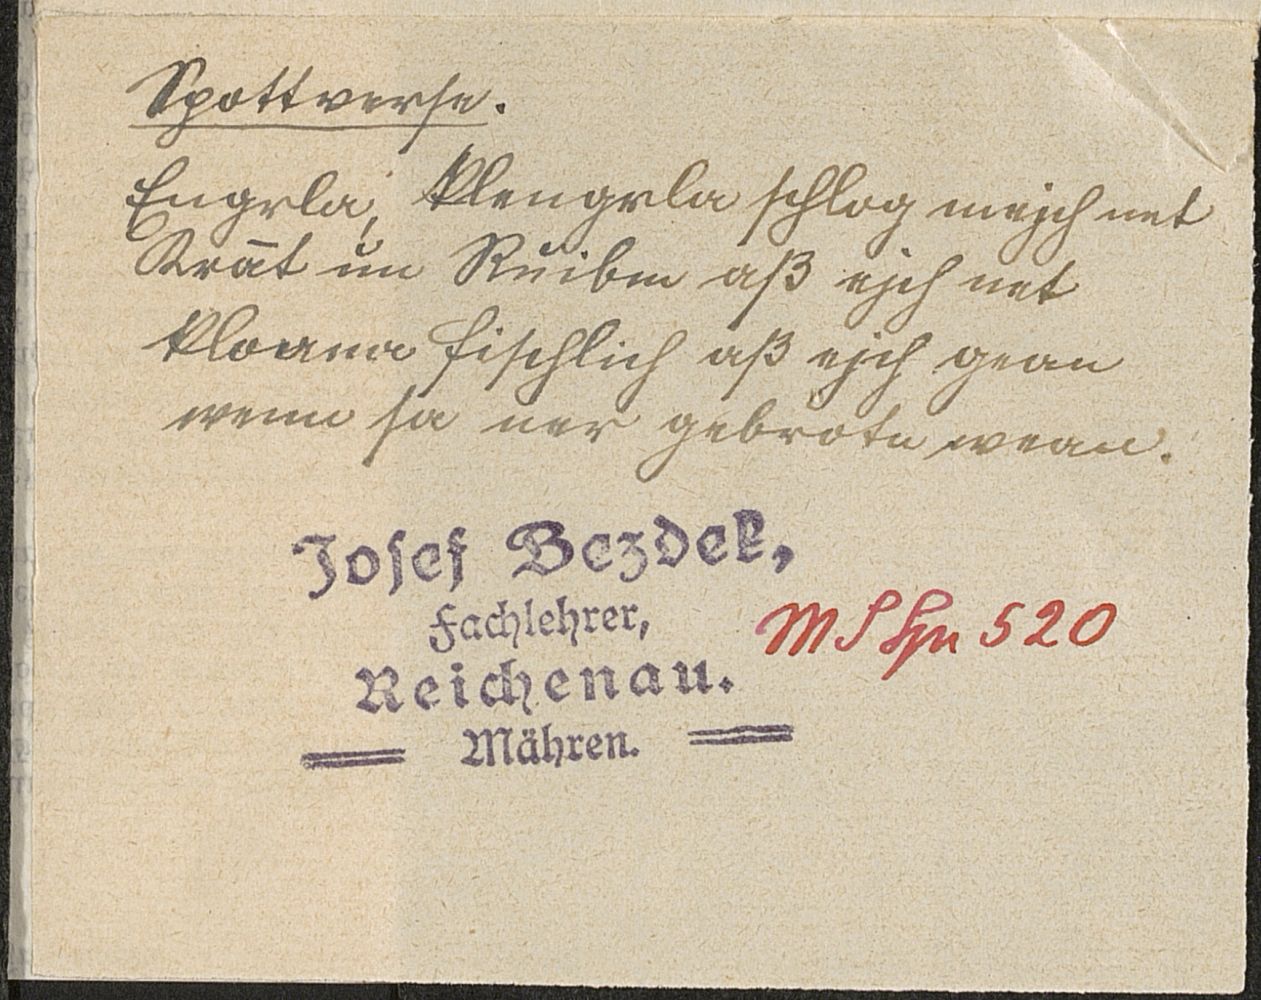 Spottverse.
Engerla, Klengerla schlog mejch net
Krāt un Ruibm aß ejch net
kloana Fischlich aß ejch gean
wenn sa ner gebrotn wean.
Josef Bezdek,
Fachlehrer,
Reichenau.
Mähren.
520